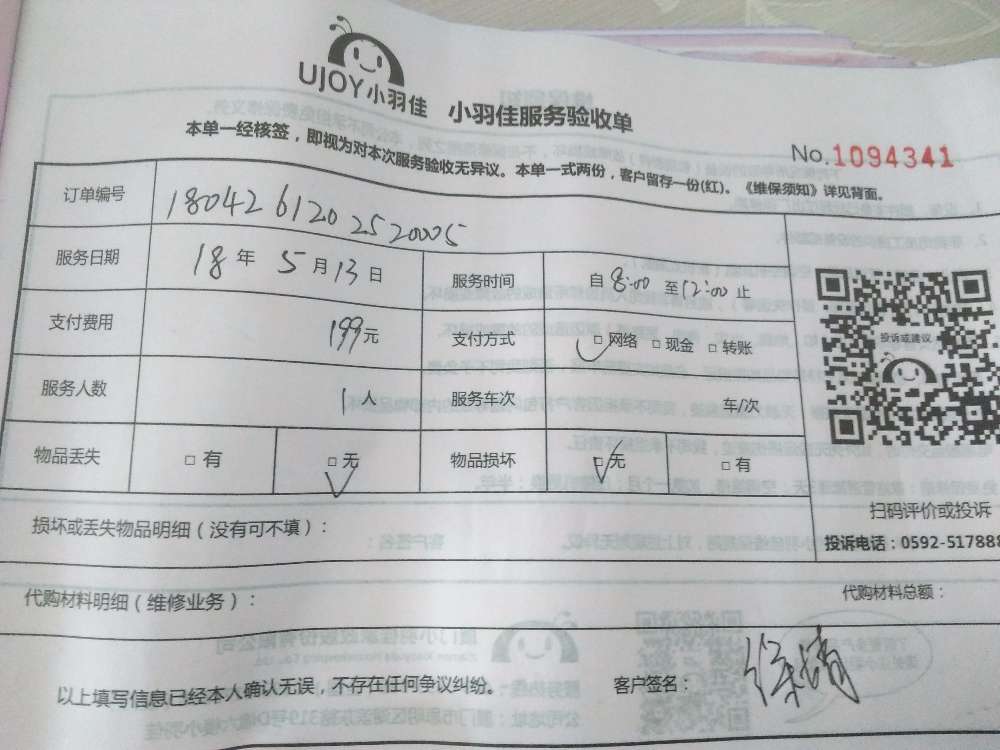 UJOY小羽佳 小羽佳服务验收单
本单一经核签，即视为对本次服务验收无异议。本单一式两份，客户留存一份(红)。《维保须知》详见背面。
No.1094341
订单编号 1804261202520005
服务日期 18年5月13日 服务时间 自8:00至12:00止
支付费用 199元 支付方式 □网络 □现金 □转账
投诉或建议
服务人数 1人 服务车次 车/次
物品丢失 □有 □无 物品损坏 □无 □有
扫码评价或投诉
损坏或丢失物品明细（没有可不填）：
投诉电话：0592-517888
代购材料明细（维修业务）：
代购材料总额：
以上填写信息已经本人确认无误，不存在任何争议纠纷。
客户签名：